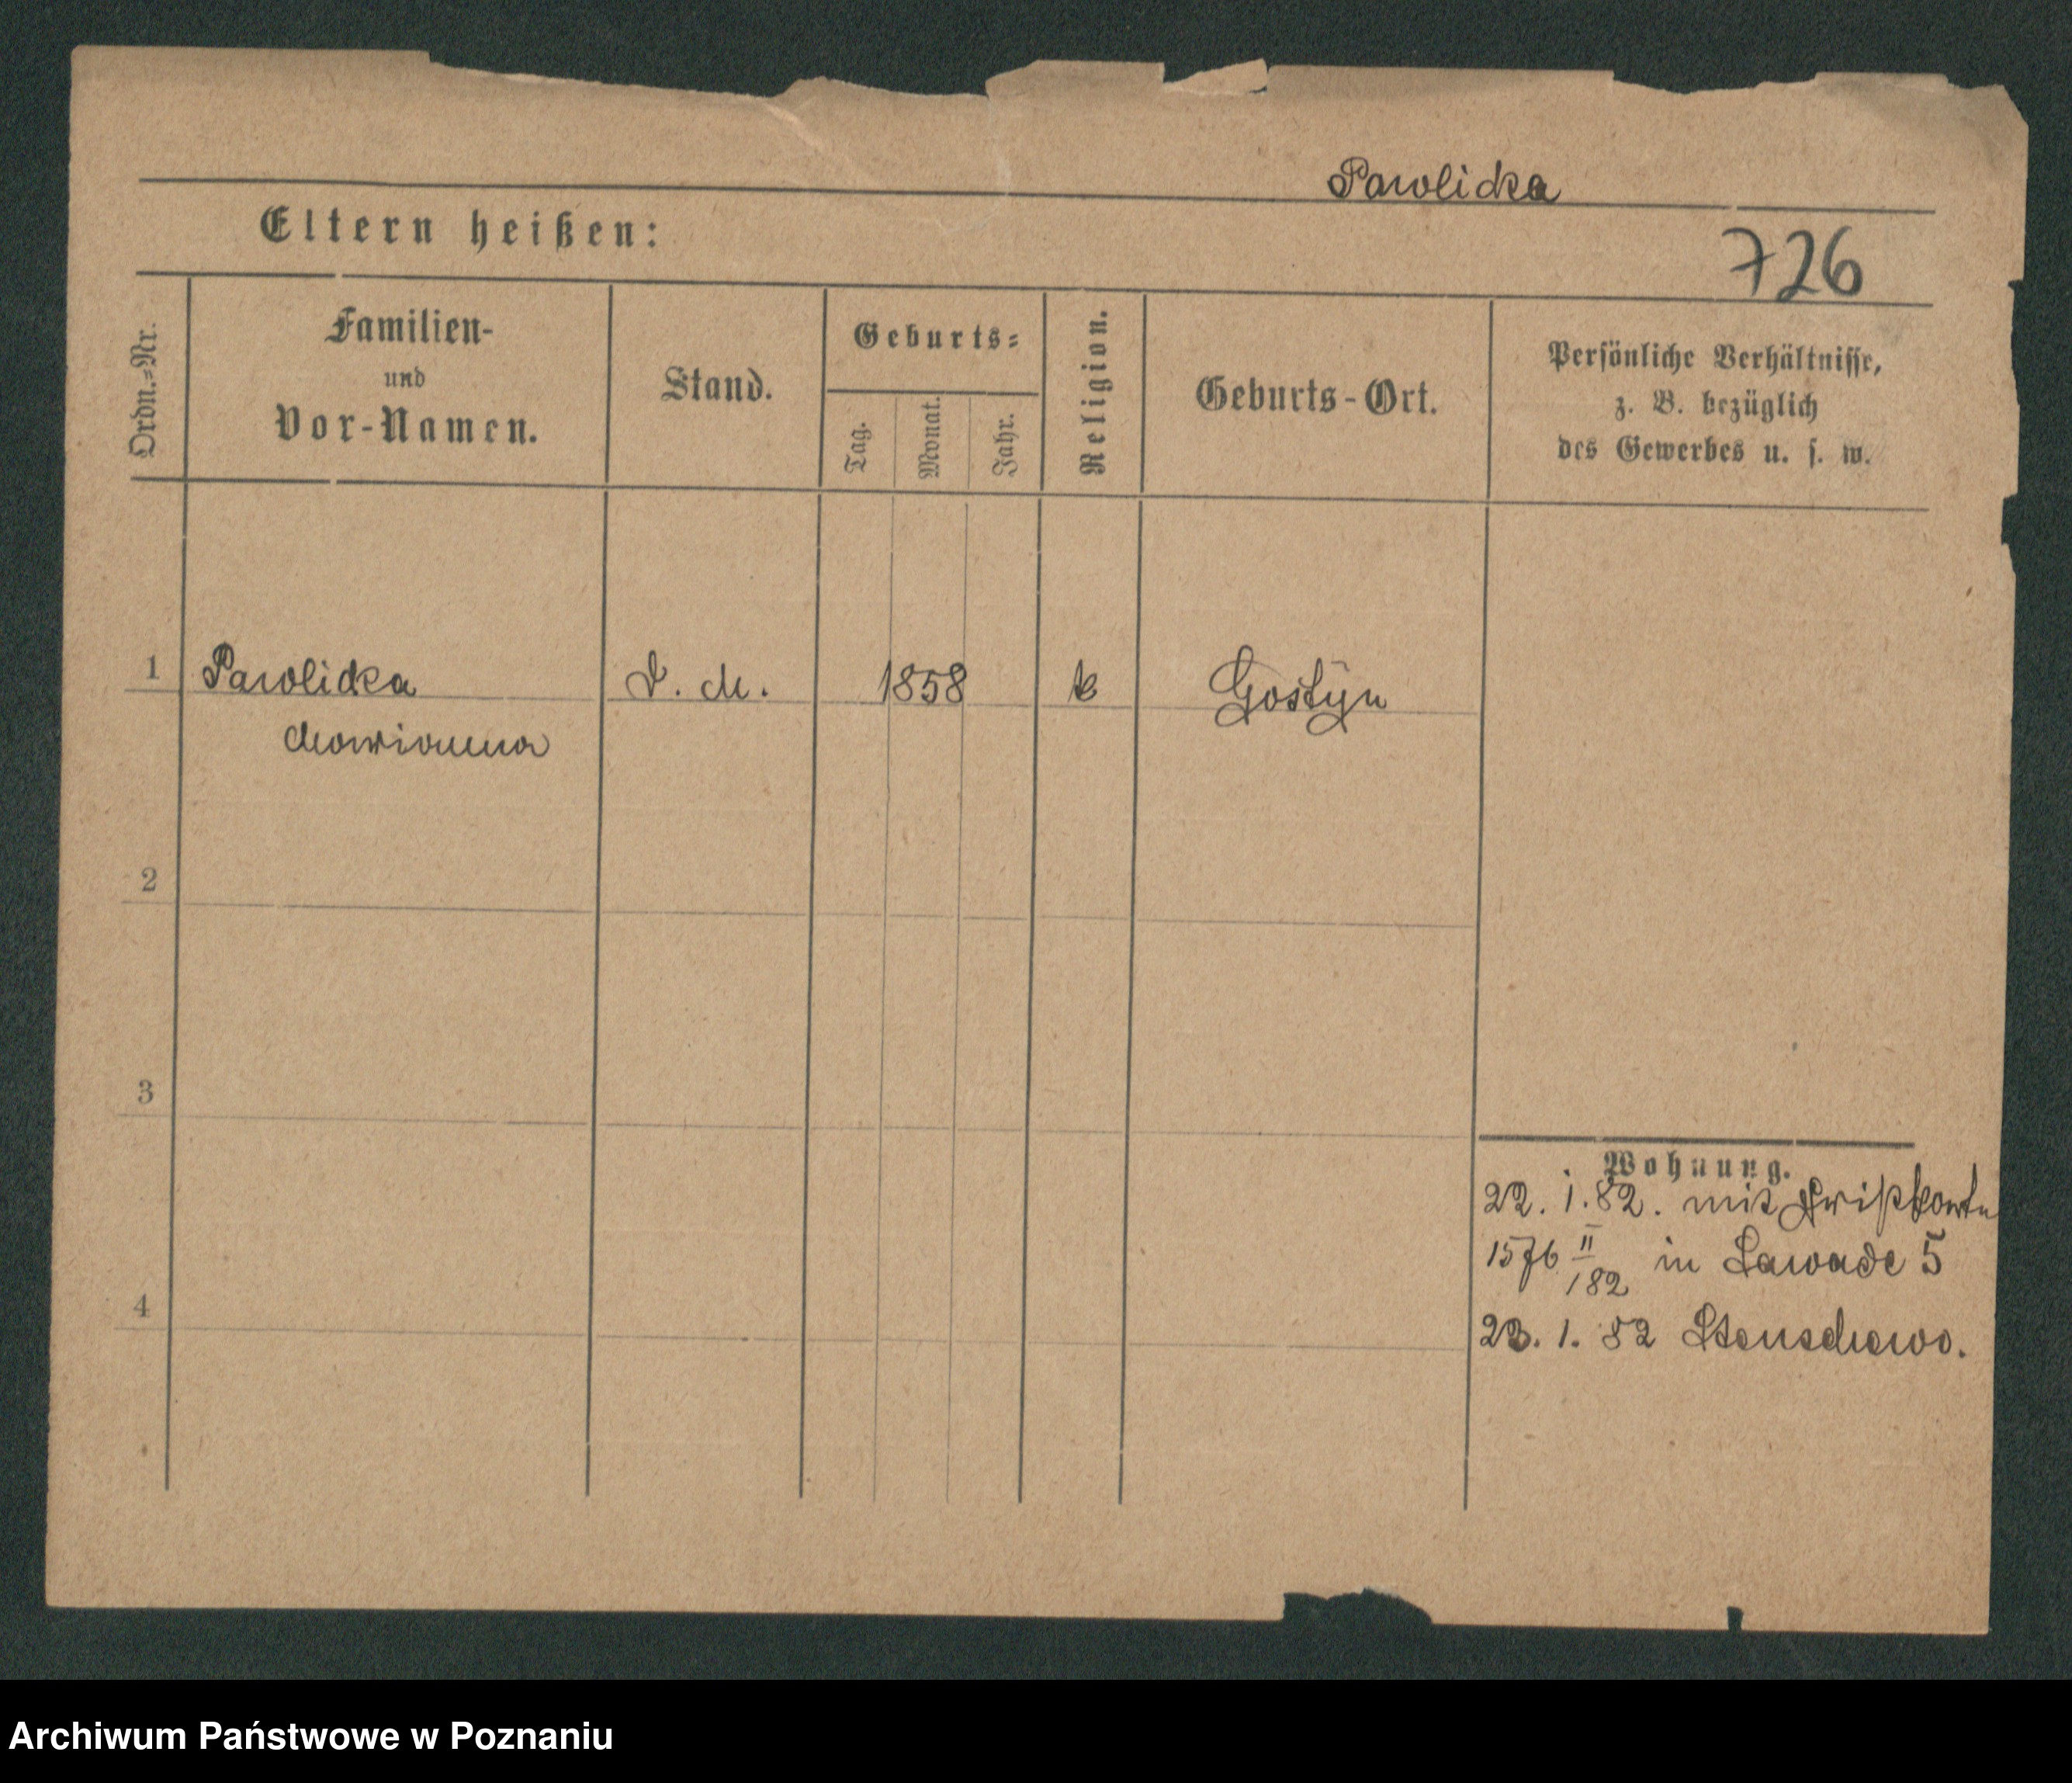 Pawlicka
Eltern heißen:
726
Ordn.=Nr.
Familien-
und
Vor-Namen.
Stand.
Geburts=
Tag.
Monat.
Jahr.
Religion.
Geburts-Ort.
Persönliche Verhältnisse,
z. B. bezüglich
des Gewerbes u. s. w.
1 Pawlicka D. M. 1858 k Gostyn
Marianna
2
3
4
Wohnung.
22. 1. 82. mit
1576 II/182 in Zawade 5
23. 1. 82 Stenschewo.
Archiwum Państwowe w Poznaniu